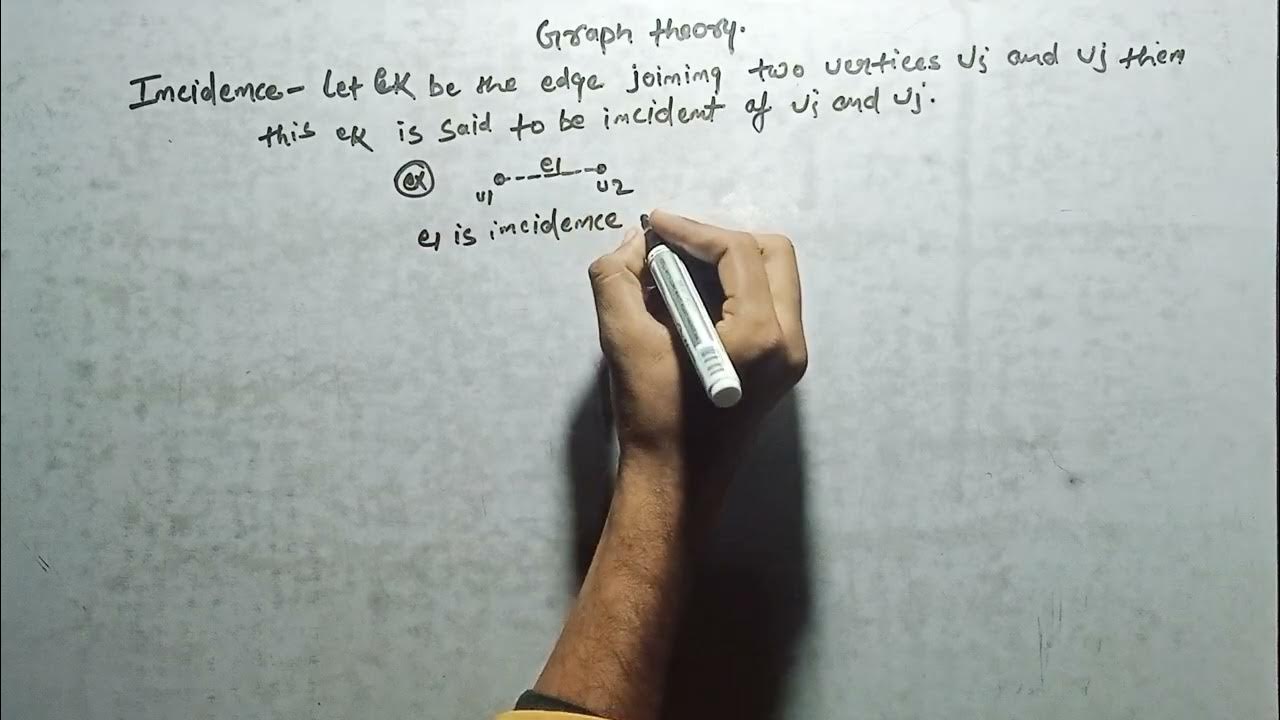 Graph theory.
Incidence- Let ek be the edge joining two vertices vi and vj then
this ek is said to be incident of vi and vj.
ex
e1
v1 v2
e1 is incidence